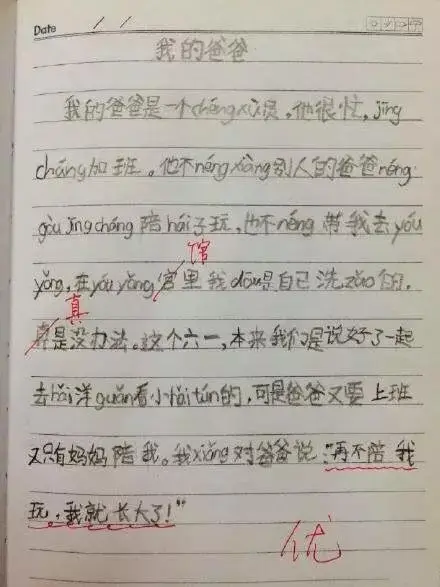 Date / /
我的爸爸
我的爸爸是一个chéngxù员，他很忙，jīng
cháng加班。他不néngxiàng别人的爸爸néng
gòu jīngcháng陪hái子玩，也不néng带我去yóu
馆
yǒng，在yóuyǒng官里我dōu是自己洗zǎo的，
真
真是没办法。这个六一，本来我们是说好了一起
去hǎi洋guǎn看小hǎitún的，可是爸爸又要上班
又只有妈妈陪我。我xiǎng对爸爸说：“再不陪我
玩，我就长大了！”
优